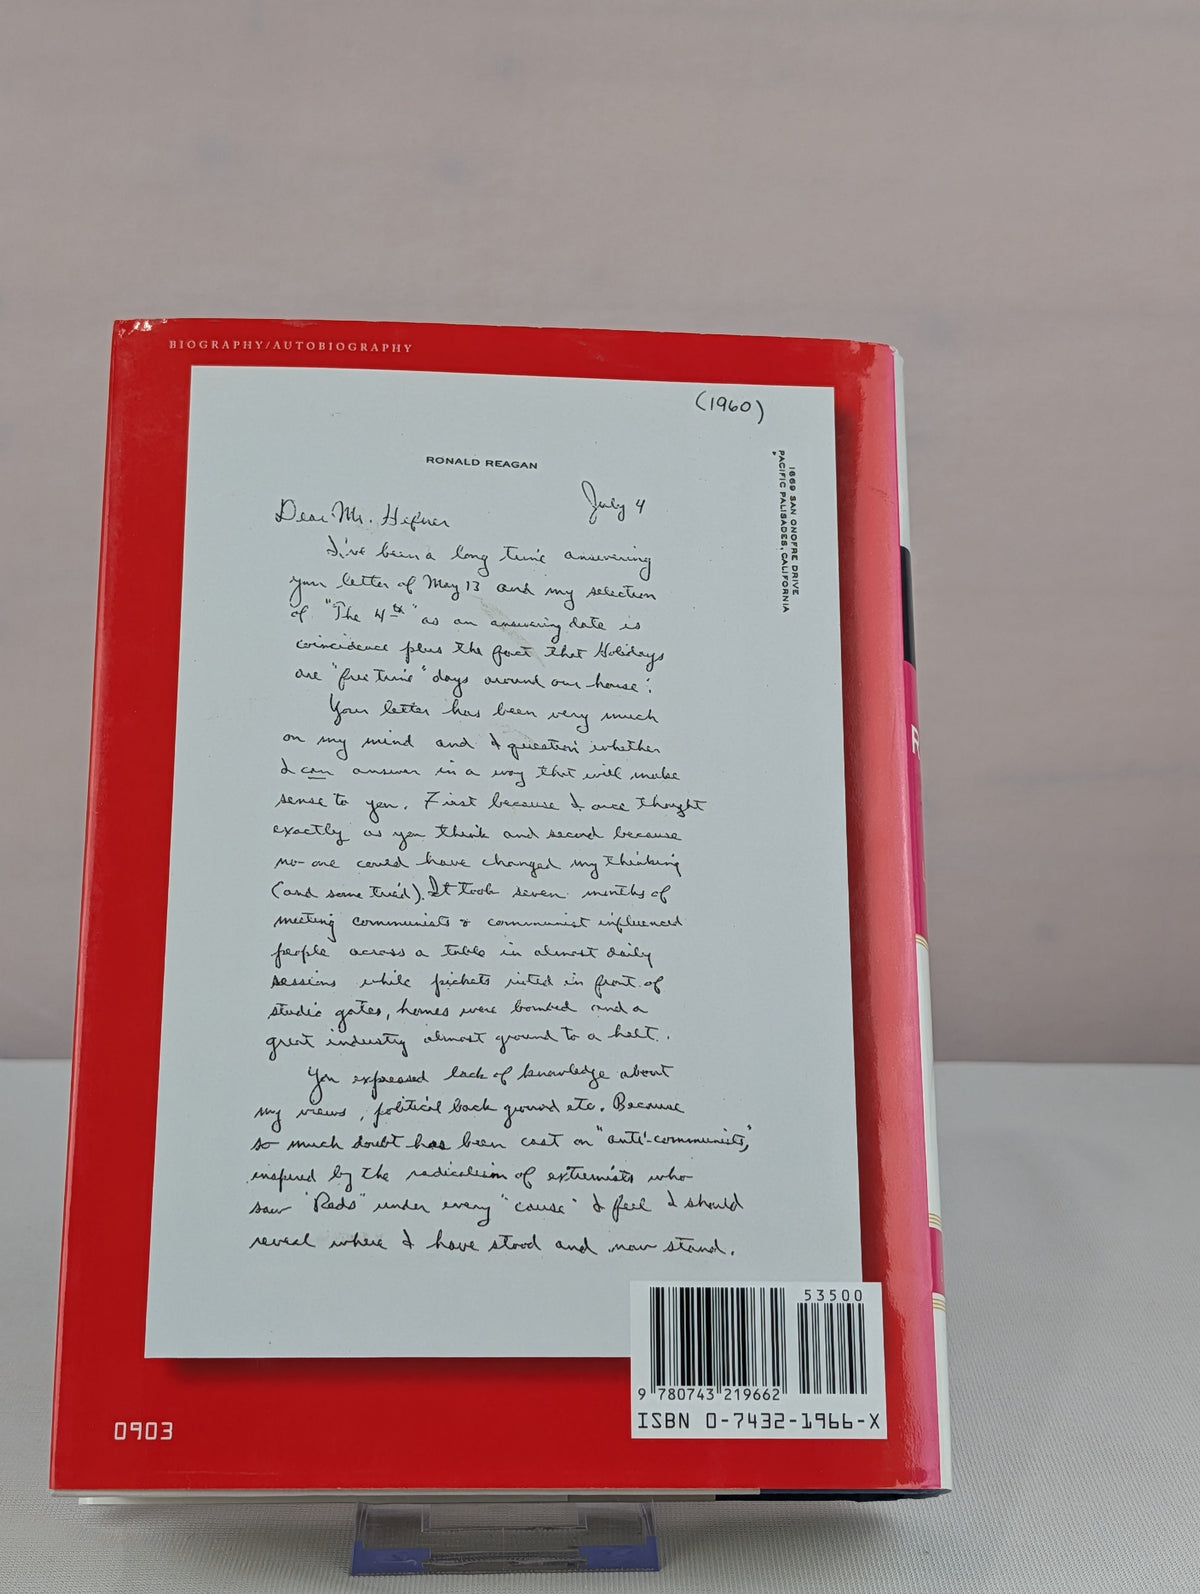 BIOGRAPHY/AUTOBIOGRAPHY
(1960)
RONALD REAGAN
1669 SAN ONOFRE DRIVE
PACIFIC PALISADES, CALIFORNIA
July 4
Dear Mr. Hefner
I've been a long time answering
your letter of May 13 and my selection
of "The 4th" as an answering date is
coincidence plus the fact that Holidays
are "free time" days around our house.
Your letter has been very much
on my mind and I question whether
I can answer in a way that will make
sense to you. First because I once thought
exactly as you think and second because
no-one could have changed my thinking
(and some tried). It took seven months of
meeting communists & communist influenced
people across a table in almost daily
sessions while pickets rioted in front of
studio gates, homes were bombed and a
great industry almost ground to a halt.
You expressed lack of knowledge about
my views, political back ground etc. Because
so much doubt has been cast on "anti-communists,"
inspired by the radicalism of extremists who
saw "Reds" under every "cause" I feel I should
reveal where I have stood and now stand.
53500
9 780743 219662
ISBN 0-7432-1966-X
0903
R